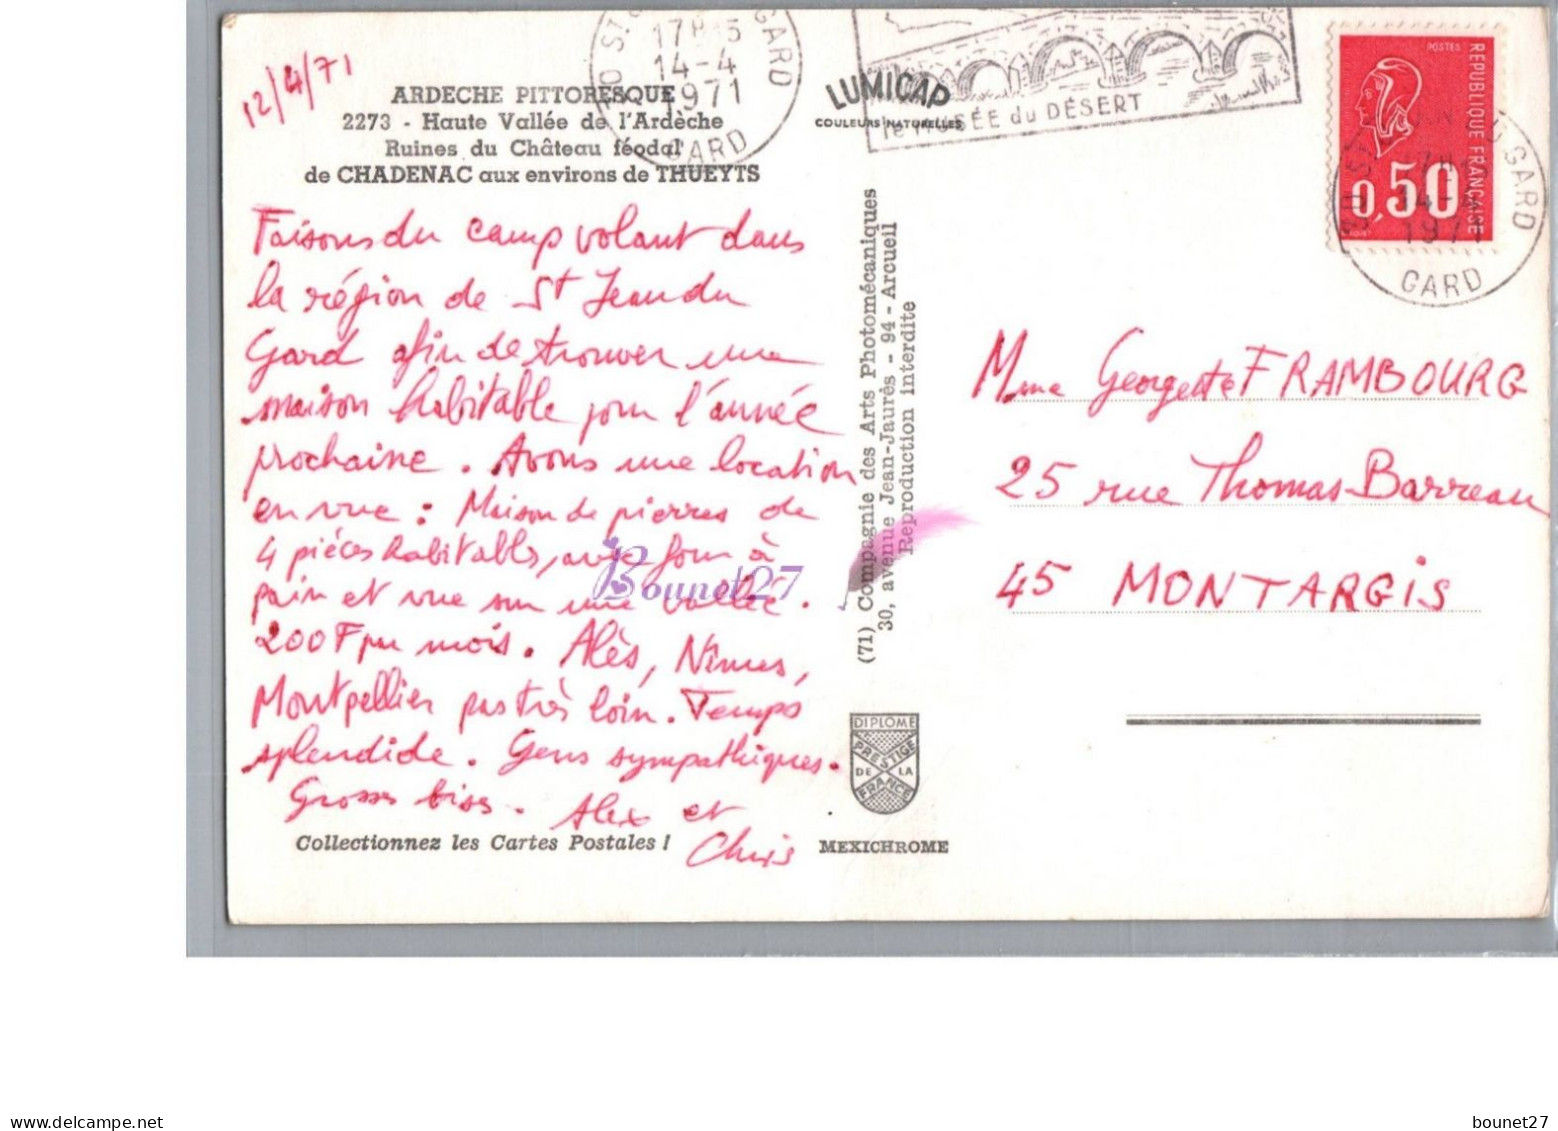 12/4/71
ARDECHE PITTORESQUE
2273 - Haute Vallée de l'Ardèche
Ruines du Château féodal
de CHADENAC aux environs de THUEYTS
17H15
14-4
1971
GARD
GARD
LUMICAP
COULEURS NATURELLES
le MUSÉE du DÉSERT
POSTES
REPUBLIQUE FRANÇAISE
0,50
14-4
1971
GARD
GARD
Faisons du camp volant dans
la région de St Jean du
Gard afin de trouver une
maison habitable pour l'année
prochaine. Avons une location
en vue : Maison de pierres de
4 pièces habitables, avec four à
pain et vue sur une vallée.
200F par mois. Alès, Nimes,
Montpellier pas très loin. Temps
splendide. Gens sympathiques.
Grosses bises. Alex et
Chris
Collectionnez les Cartes Postales !
(71) Compagnie des Arts Photomécaniques
30, avenue Jean-Jaurès - 94 - Arcueil
Reproduction interdite
Bounet27
DIPLOME
PRESTIGE
DE LA
FRANCE
MEXICHROME
Mme Georgette FRAMBOURG
25 rue Thomas Barreau
45 MONTARGIS
www.delcampe.net
bounet27